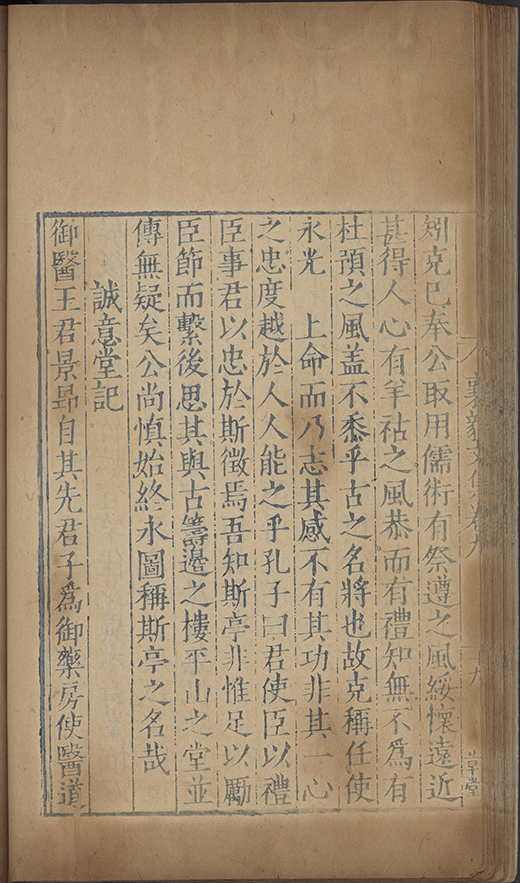 矧克己奉公取用儒術有祭遵之風綏懷遠近
甚得人心有羊祜之風恭而有禮知無不爲有
杜預之風盖不忝乎古之名將也故克稱任使
永光　上命而乃志其感不有其功非其一心
之忠度越於人人能之乎孔子曰君使臣以禮
臣事君以忠於斯徵焉吾知斯亭非惟足以勵
臣節而繫後思其與古籌邊之樓平山之堂並
傳無疑矣公尚慎始終永圖稱斯亭之名哉
誠意堂記
御醫王君景昴自其先君子爲御藥房使醫道
襄毅文集卷九
十九
草堂